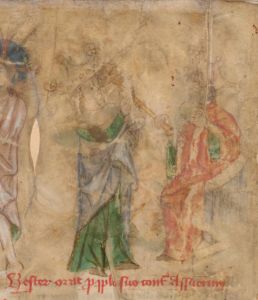 Hester orat p pplo suo coram Assuerum